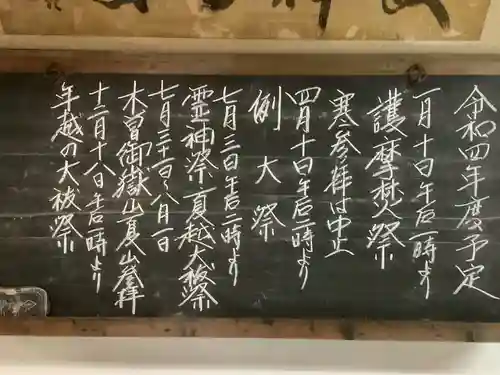 令和四年度予定
一月十日午后一時より
護摩焚祭
寒参拝は中止
四月十日午后一時より
例大祭
七月三日午后一時より
霊神祭・夏越大祓祭
七月三十一日〜八月一日
木曽御嶽山夏山登拝
十二月十八日午后一時より
年越の大祓祭